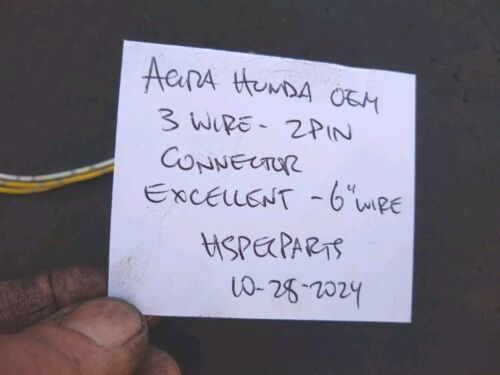 ACURA HONDA OEM
3 WIRE - 2 PIN
CONNECTOR
EXCELLENT - 6" WIRE
HSPECPARTS
10-28-2024